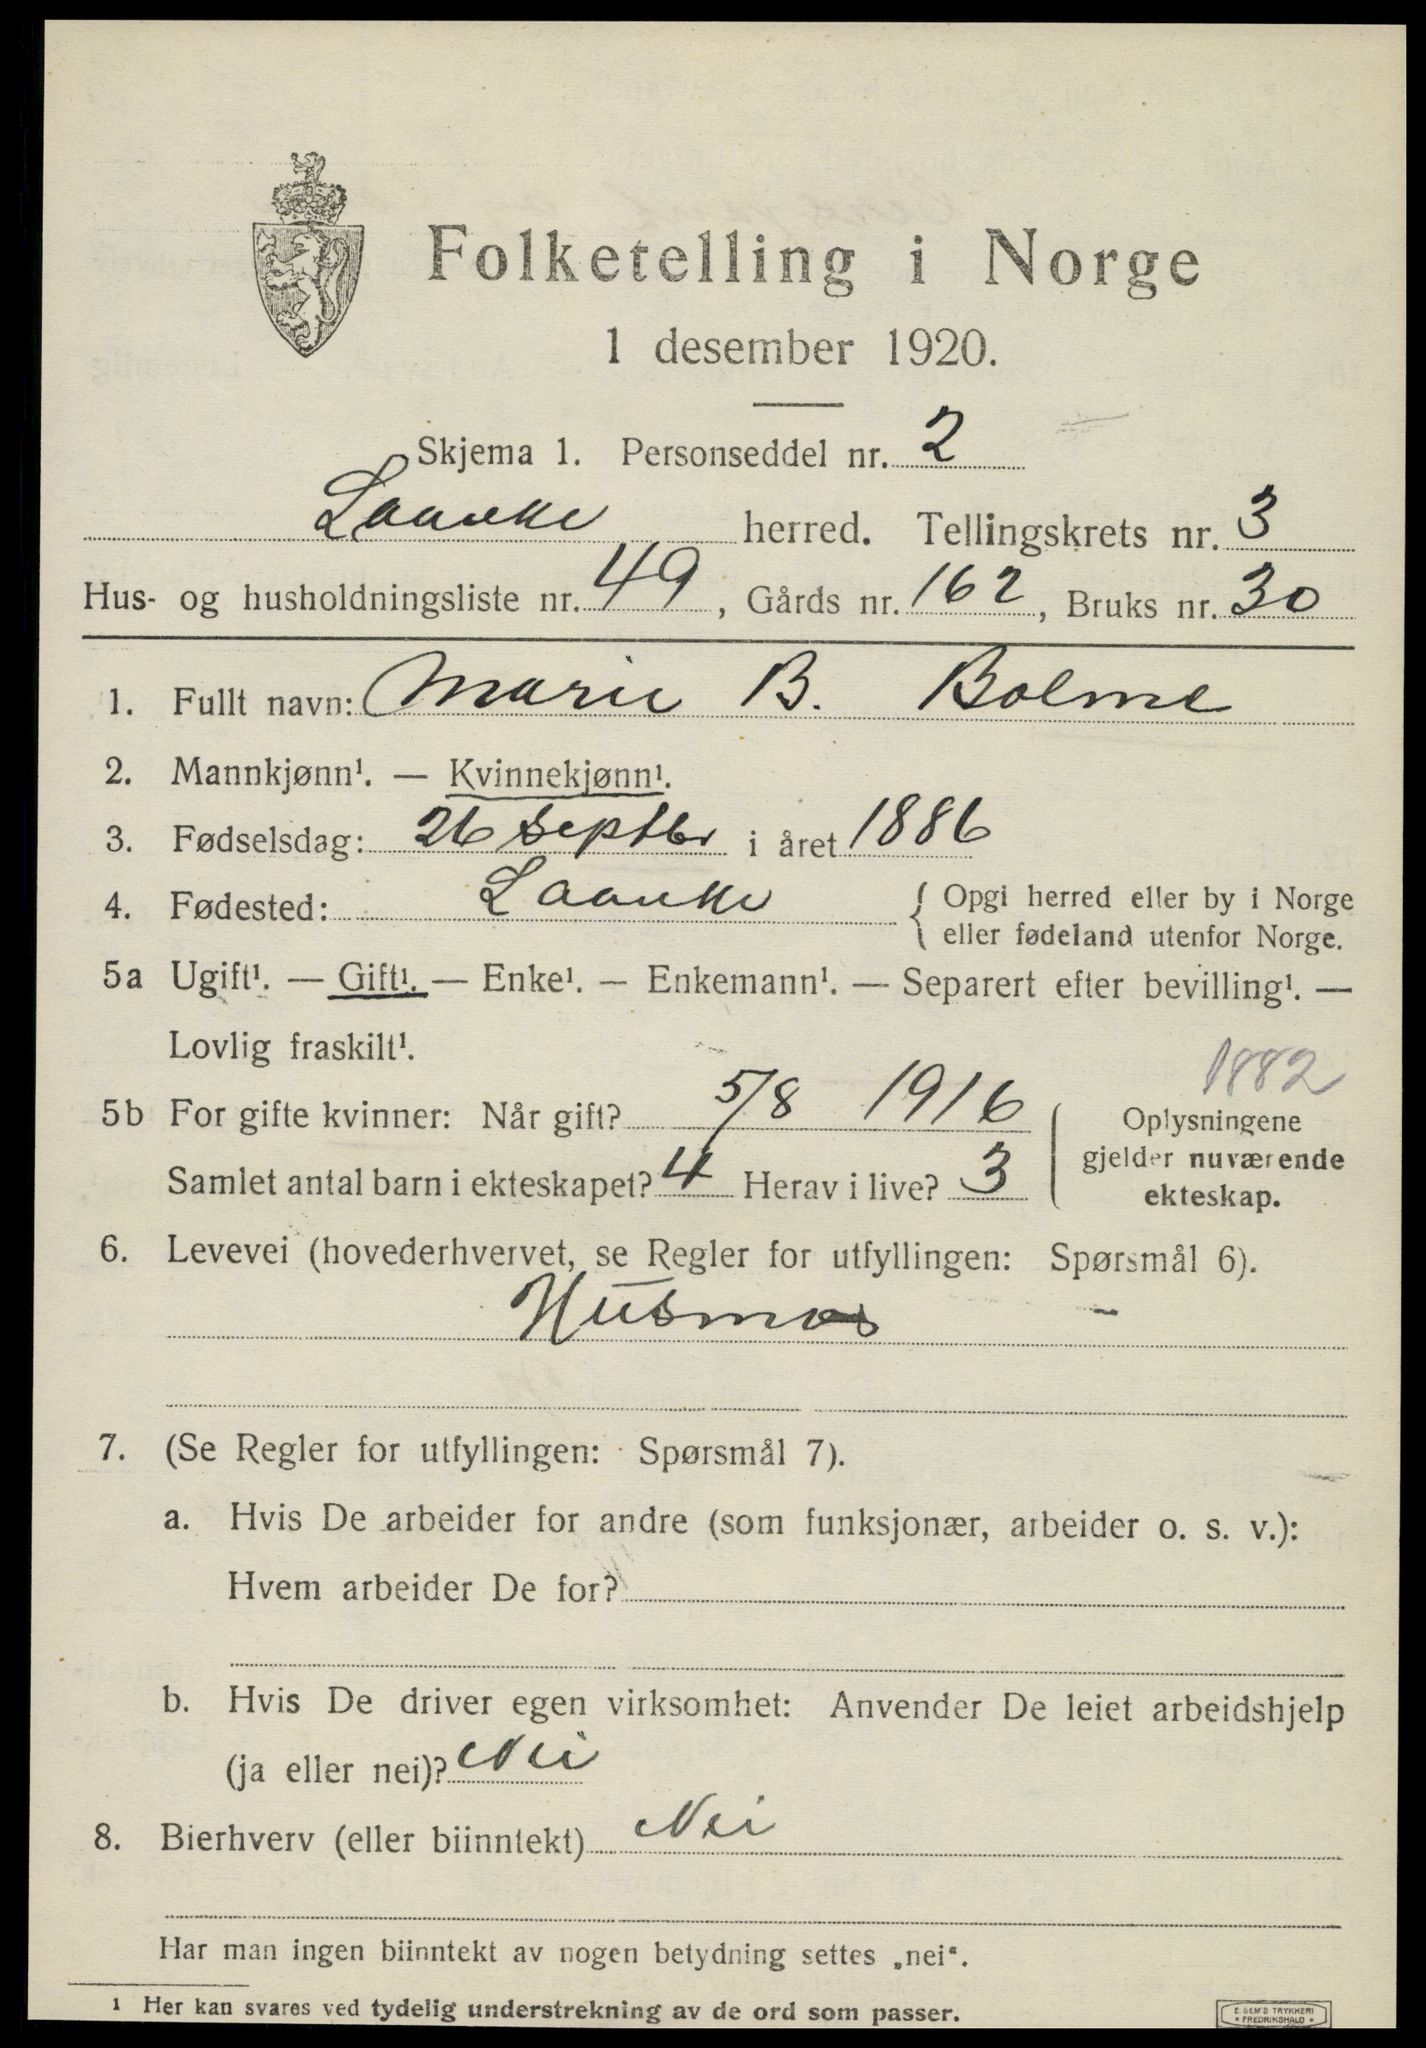 Folketelling i Norge
1 desember 1920.
Skjema 1. Personseddel nr. 2
Laanke herred. Tellingskrets nr. 3
Hus- og husholdningsliste nr. 49, Gårds nr. 162, Bruks nr. 30
1. Fullt navn: Marie B. Bolme
2. Mannkjønn¹. — Kvinnekjønn¹.
3. Fødselsdag: 26 septbr i året 1886
4. Fødested: Laanke { Opgi herred eller by i Norge
eller fødeland utenfor Norge.
5a Ugift¹. — Gift¹. — Enke¹. — Enkemann¹. — Separert efter bevilling¹. —
Lovlig fraskilt¹.
1882
5b For gifte kvinner: Når gift? 5/8 1916
Samlet antal barn i ekteskapet? 4 Herav i live? 3
Oplysningene
gjelder nuværende
ekteskap.
6. Levevei (hovederhvervet, se Regler for utfyllingen: Spørsmål 6).
Husmos
7. (Se Regler for utfyllingen: Spørsmål 7).
a. Hvis De arbeider for andre (som funksjonær, arbeider o. s. v.):
Hvem arbeider De for?
b. Hvis De driver egen virksomhet: Anvender De leiet arbeidshjelp
(ja eller nei)? Nei
8. Bierhverv (eller biinntekt) Nei
Har man ingen biinntekt av nogen betydning settes „nei“.
1 Her kan svares ved tydelig understrekning av de ord som passer.
E. SEM'S TRYKKERI
• FREDRIKSHALD •